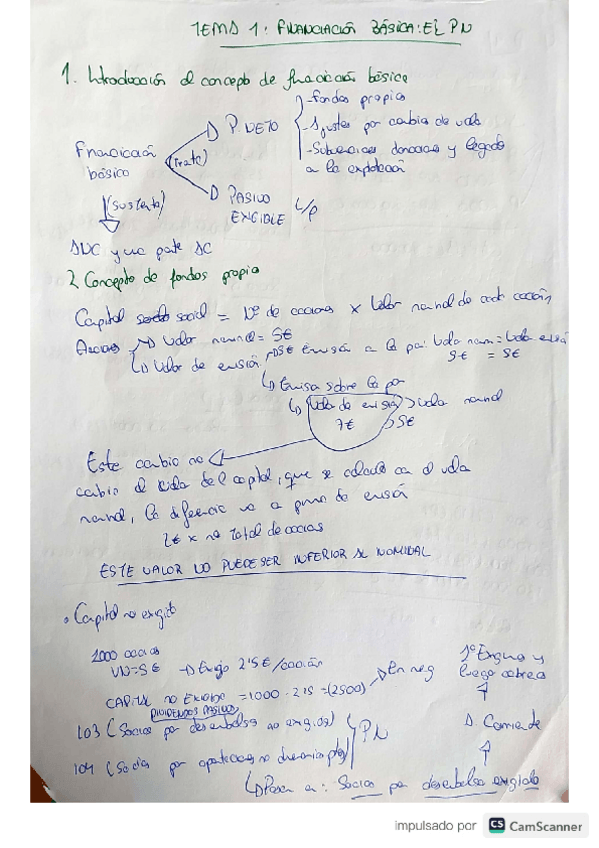 TEMA 1: FINANCIACIÓN BÁSICA: EL PN
1. Introducción al concepto de financiación básica
Financiación básica (trata)
P. NETO
-fondos propios
-Ajustes por cambio de valor
-Subvenciones donaciones y legados a la explotación
PASIVO EXIGIBLE L/p
(sustenta)
ANC y una parte AC
2. Concepto de fondos propios
Capital social = Nº de acciones x Valor nominal de cada acción
Acciones Valor nominal = 5€
Valor de emisión Emisión a la par: Valor nom = Valor emisión
5€ = 5€
Emisión sobre la par
Valor de emisión > valor nominal
7€ > 5€
Este cambio no
cambia el valor del capital, que se calcula con el valor
nominal, la diferencia va a prima de emisión
2€ x nº total de acciones
ESTE VALOR NO PUEDE SER INFERIOR AL NOMINAL
Capital no exigido
1000 acciones
VN=5€ Exijo 2'5€/acción
CAPITAL NO EXIGIDO = 1000 · 2'5 = (2500) En neg
DIVIDENDOS PASIVOS
103 (Socios por desembolsos no exigidos)
104 (Socios por aportaciones no dinerarias ptes)
PN
Pasan a: Socios por desembolsos exigidos
A. Corriente
1º Exigimos y luego cobramos
impulsado por CS CamScanner